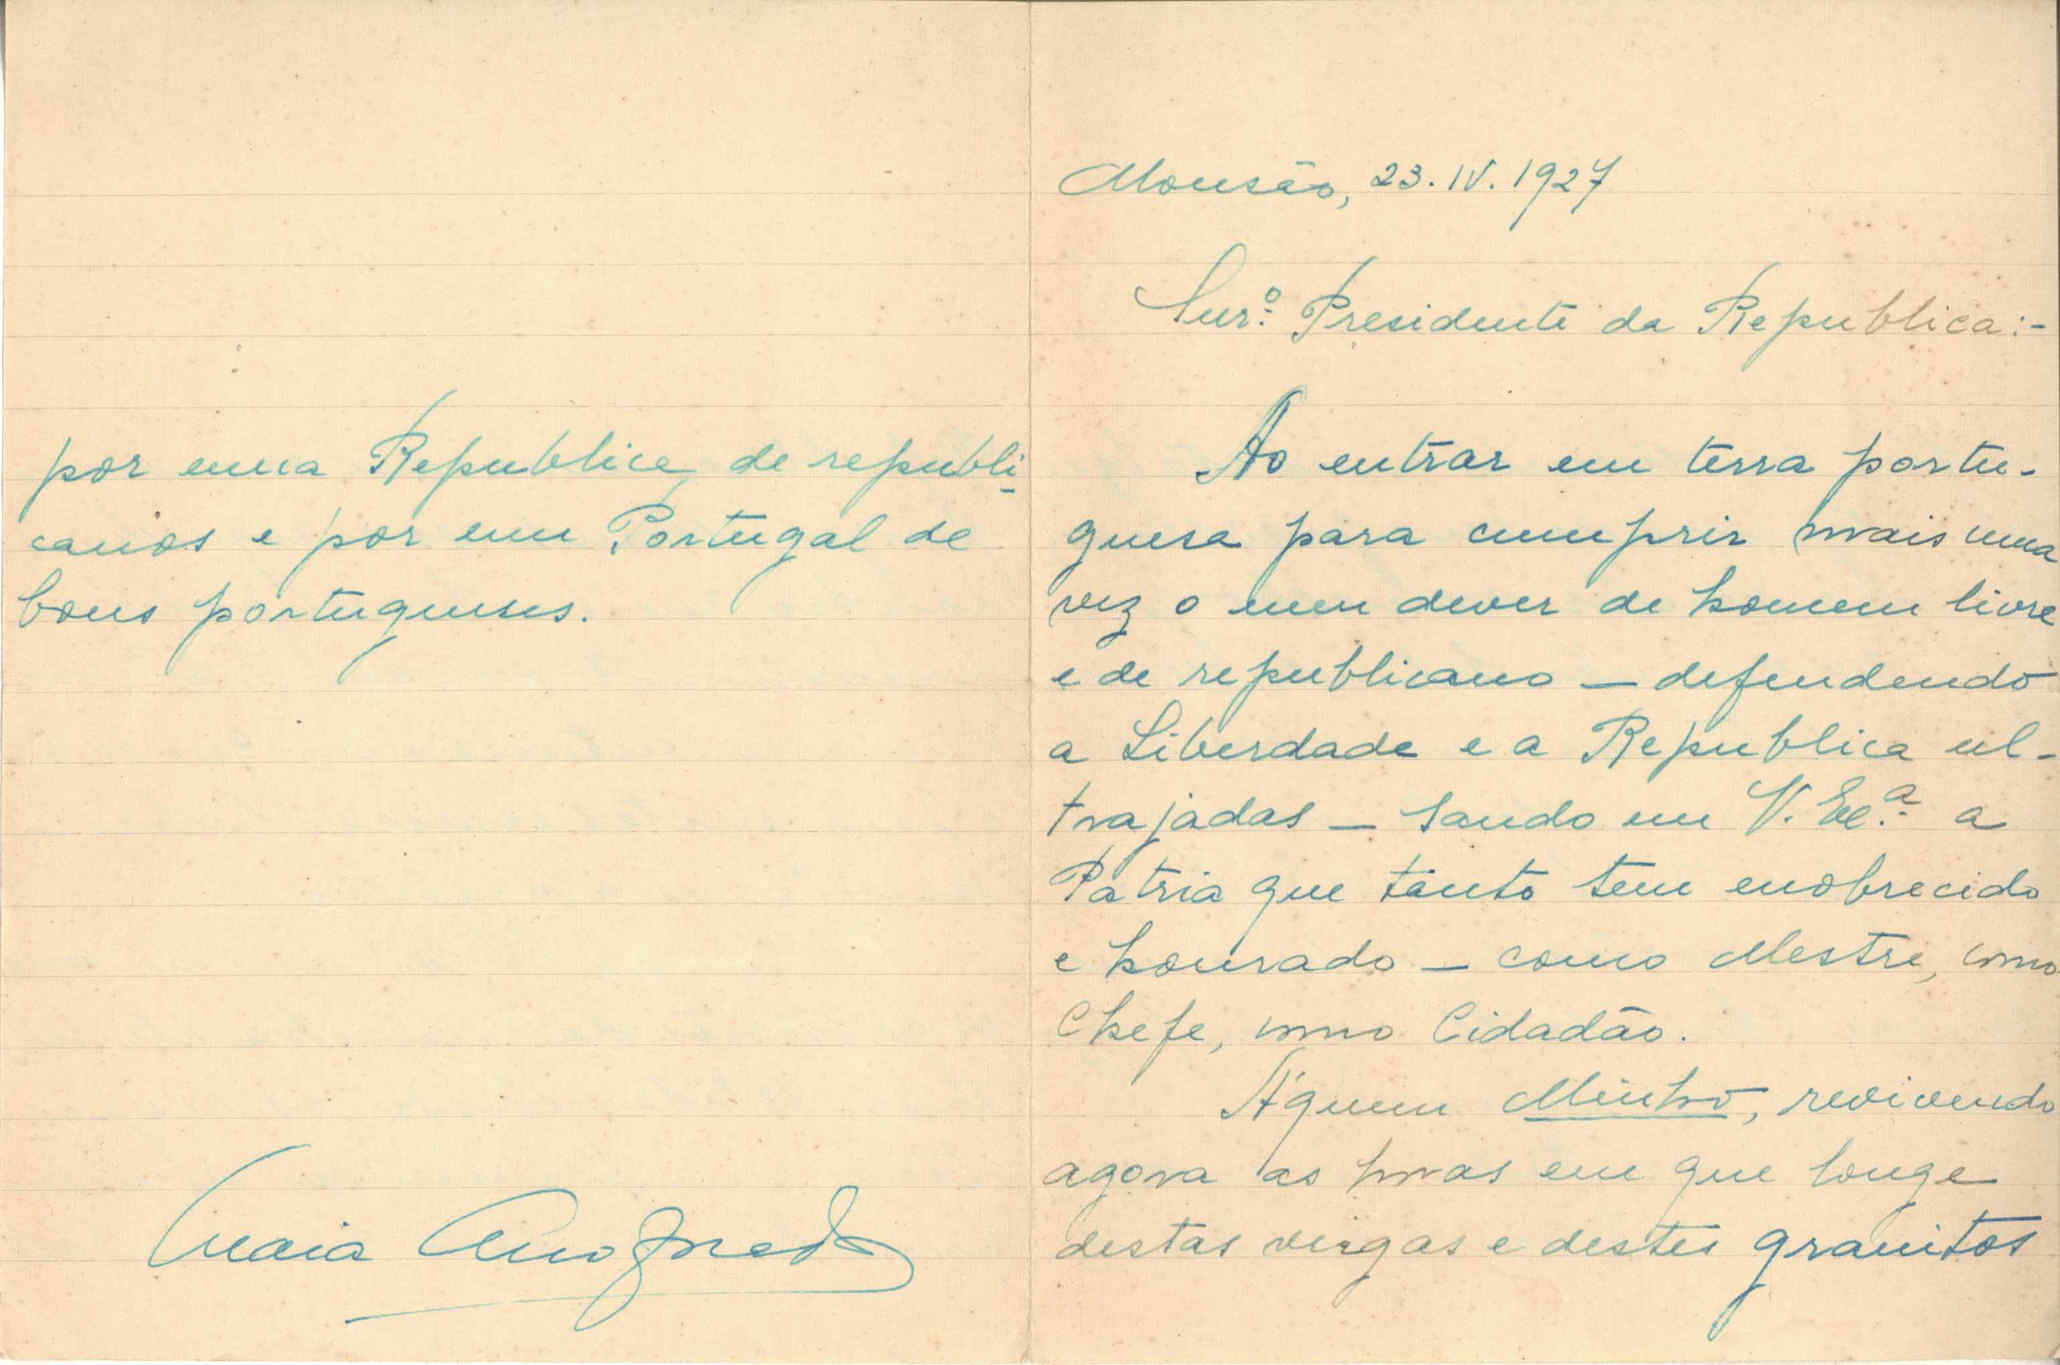 Monsão, 23.IV.1927
Snr.º Presidente da Republica:-
Ao entrar em terra portu-
guesa para cumprir mais uma
vez o meu dever de homem livre
e de republicano — defendendo
a Liberdade e a Republica ul-
trajadas — saudo em V. Ex.ª a
Patria que tanto tem enobrecido
e honrado — como Mestre, como
Chefe, como Cidadão.
Áquem Minho, revivendo
agora as horas em que longe
destas veigas e destes granitos
por uma Republica de republi-
canos e por um Portugal de
bons portugueses.
Maia